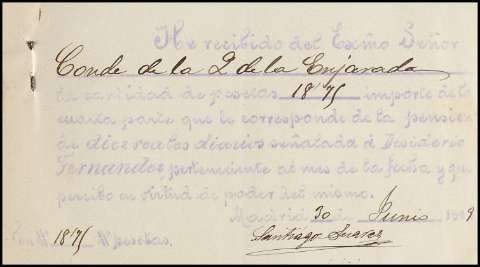 He recibido del Exmo Señor
Conde de la Q de la Enjarada
la cantidad de pesetas 18'75 importe de la
cuarta parte que le corresponde de la pensión
de diez reales diarios señalada á Desiderio
Fernandez perteneciente al mes de la fecha y que
percibo en virtud de poder del mismo.
Madrid 30 de Junio 19 9
Son #18'75 #pesetas. Santiago Suarez